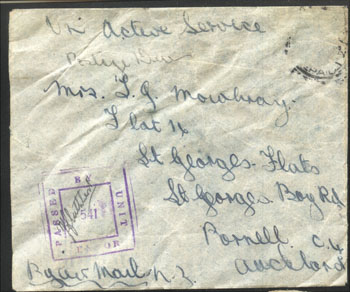 On Active Service
Postage Free
Mrs. T. G. Mowbray.
Flat 14
St Georges Flats
St Georges Bay Rd
Parnell. C.4
Auckland
By Air Mail N.Z
PASSED BY
UNIT
541